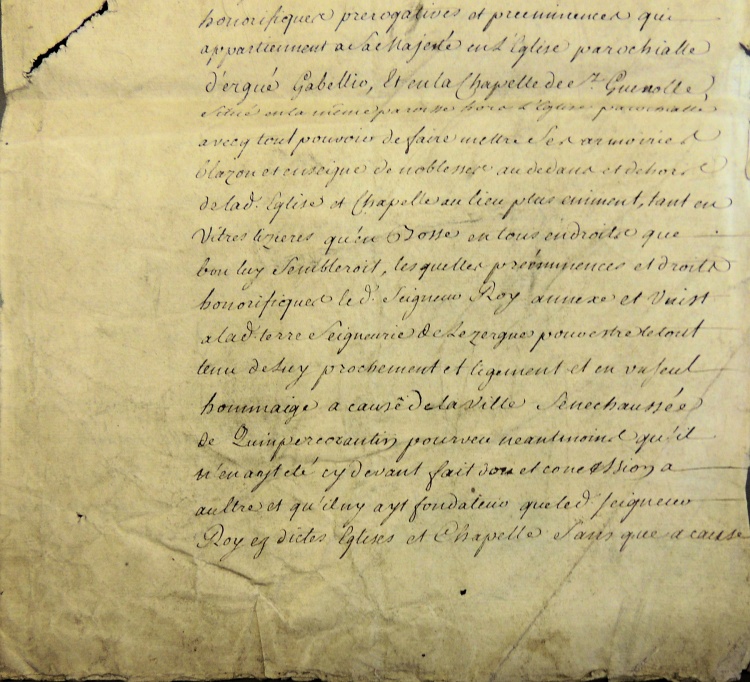 honorifiques prerogatives et preeminences qui
appartiennent a Sa Majesté en l'Eglise parochialle
d'ergué Gabellic, Et en la Chapelle de St. Guenolle,
Situé en la même paroisse hors l'Eglise parochialle
avecq tout pouvoir de faire mettre Ses armoiries
blazon et enseigne de noblesse au dedans et dehors
de lad. Eglise et Chapelle au lieu plus eminent, tant en
Vitres lizieres qu'en Bosse en tous endroits que
bon luy Sembleroit, lesquelles prééminences et droits
honorifiques le d. Seigneur Roy annexe et Unist
a lad. terre Seigneurie de Lezergue pour estre le tout
tenu de luy prochement et ligement et en un seul
hommaige a cause de la Ville Senechaussée
de Quinpercorantin pourveu neantmoins qu'il
n'en ayt eté cy devant fait don et concession a
aultre et qu'il ny ayt fondateur que led. seigneur
Roy es dictes Eglises et Chapelle Sans que a cause